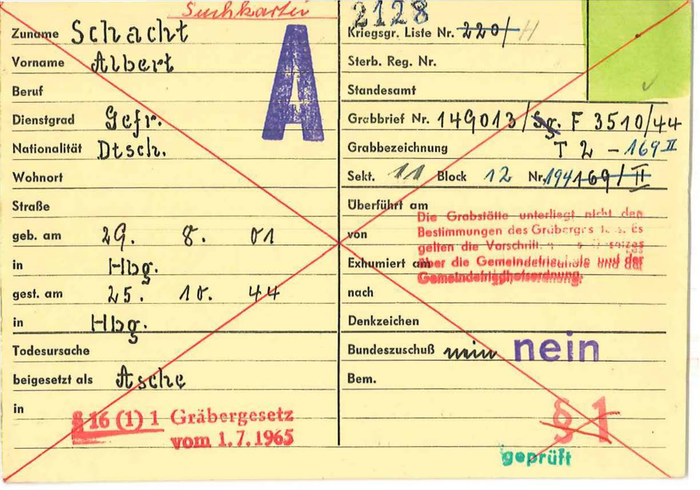 Suchkartei
Zuname Schacht
Vorname Albert
Beruf
Dienstgrad Gefr.
Nationalität Dtsch.
Wohnort
Straße
geb. am 29. 8. 01
in Hbg.
gest. am 25. 10. 44
in Hbg.
Todesursache
beigesetzt als Asche
in
§ 16 (1) 1 Gräbergesetz
vom 1.7.1965
A
2128
Kriegsgr. Liste Nr. 220/
Sterb. Reg. Nr.
Standesamt
Grabbrief Nr. 149013/Sg. F 3510/44
Grabbezeichnung T 2 - 169 II
Sekt. 11 Block 12 Nr. 194 169/II
Überführt am
Die Grabstätte unterliegt nicht den
von Bestimmungen des Gräberges Es
gelten die Vorschrift
Exhumiert am über die Gemeindefriedhöfe und der
Gemeindefriedhofsordnung.
nach
Denkzeichen
Bundeszuschuß nein nein
Bem.
§ 1
geprüft